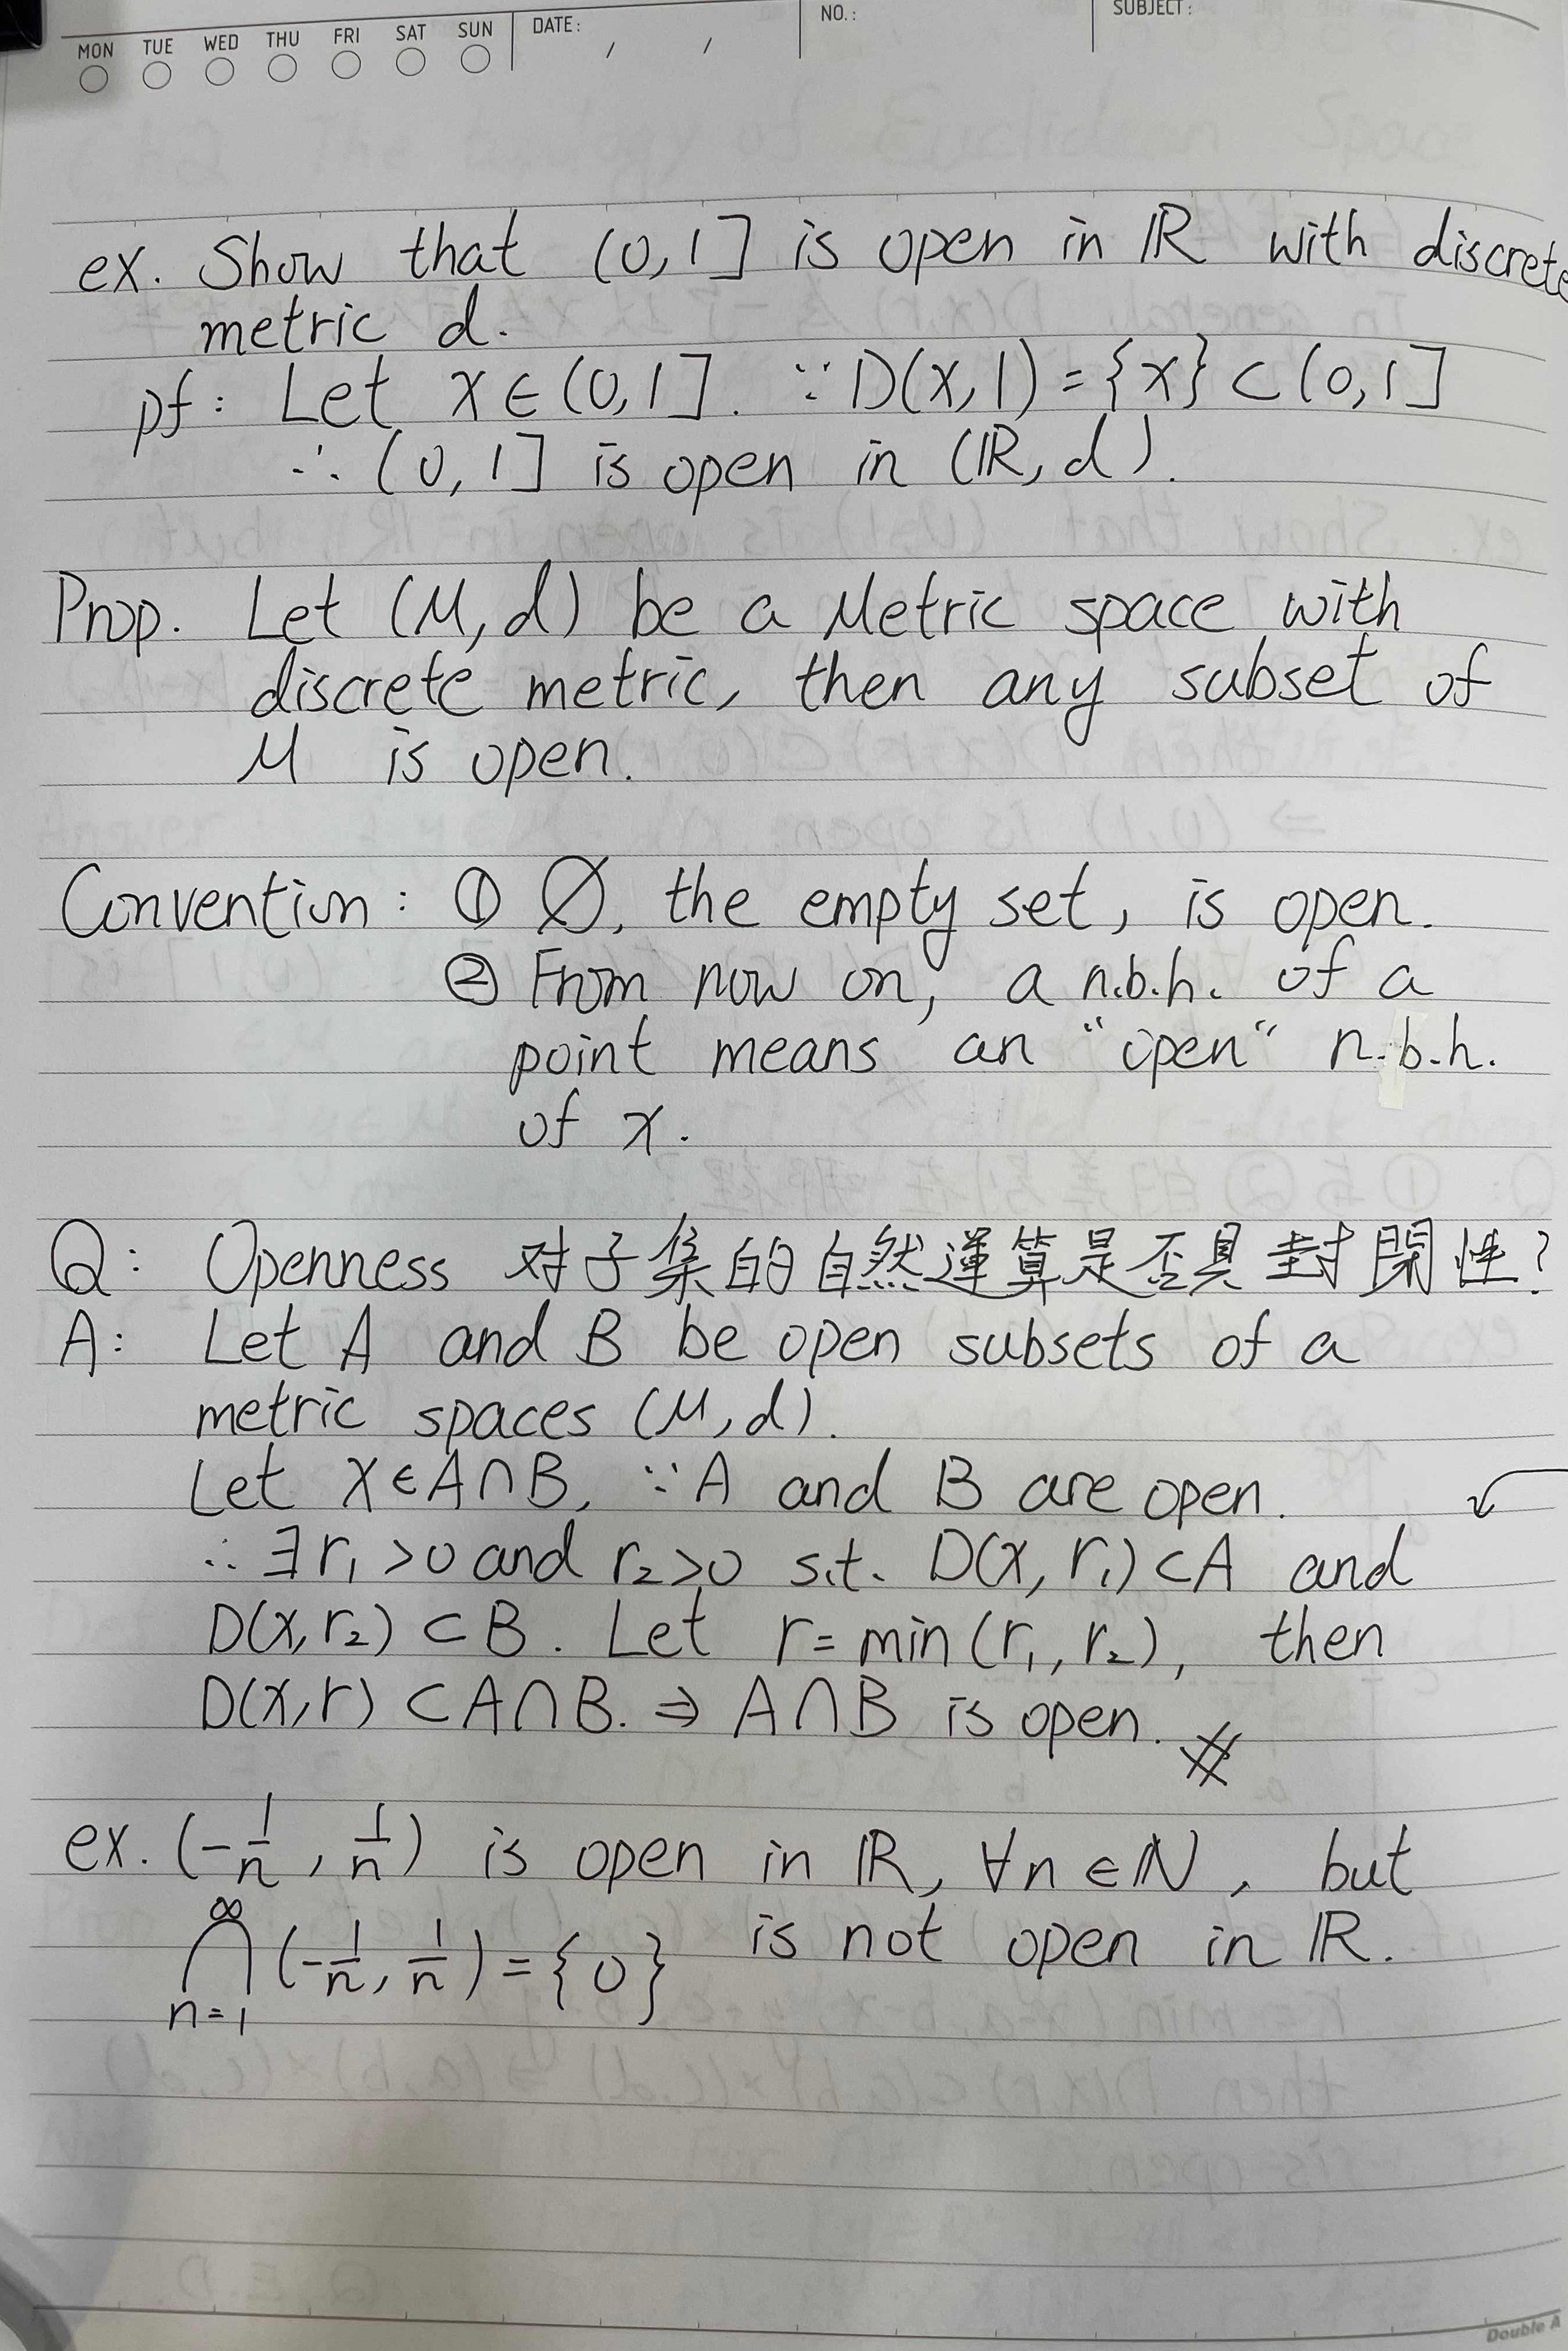 MON TUE WED THU FRI SAT SUN DATE: / / NO.: SUBJECT:
ex. Show that (0,1] is open in ℝ with discrete
metric d.
pf: Let x∈(0,1]. ∵D(x,1)={x}⊂(0,1]
∴(0,1] is open in (ℝ,d).
Prop. Let (M,d) be a Metric space with
discrete metric, then any subset of
M is open.
Convention: ① ∅, the empty set, is open.
② From now on, a n.b.h. of a
point means an "open" n.b.h.
of x.
Q: Openness 对子集的自然運算是否具封閉性?
A: Let A and B be open subsets of a
metric spaces (M,d).
Let x∈A∩B, ∵A and B are open.
∴∃r₁>0 and r₂>0 s.t. D(x,r₁)⊂A and
D(x,r₂)⊂B. Let r=min(r₁,r₂), then
D(x,r)⊂A∩B. ⇒ A∩B is open. #
ex. (-1/n, 1/n) is open in ℝ, ∀n∈ℕ, but
∞
⋂(-1/n, 1/n)={0} is not open in ℝ.
n=1
Double A